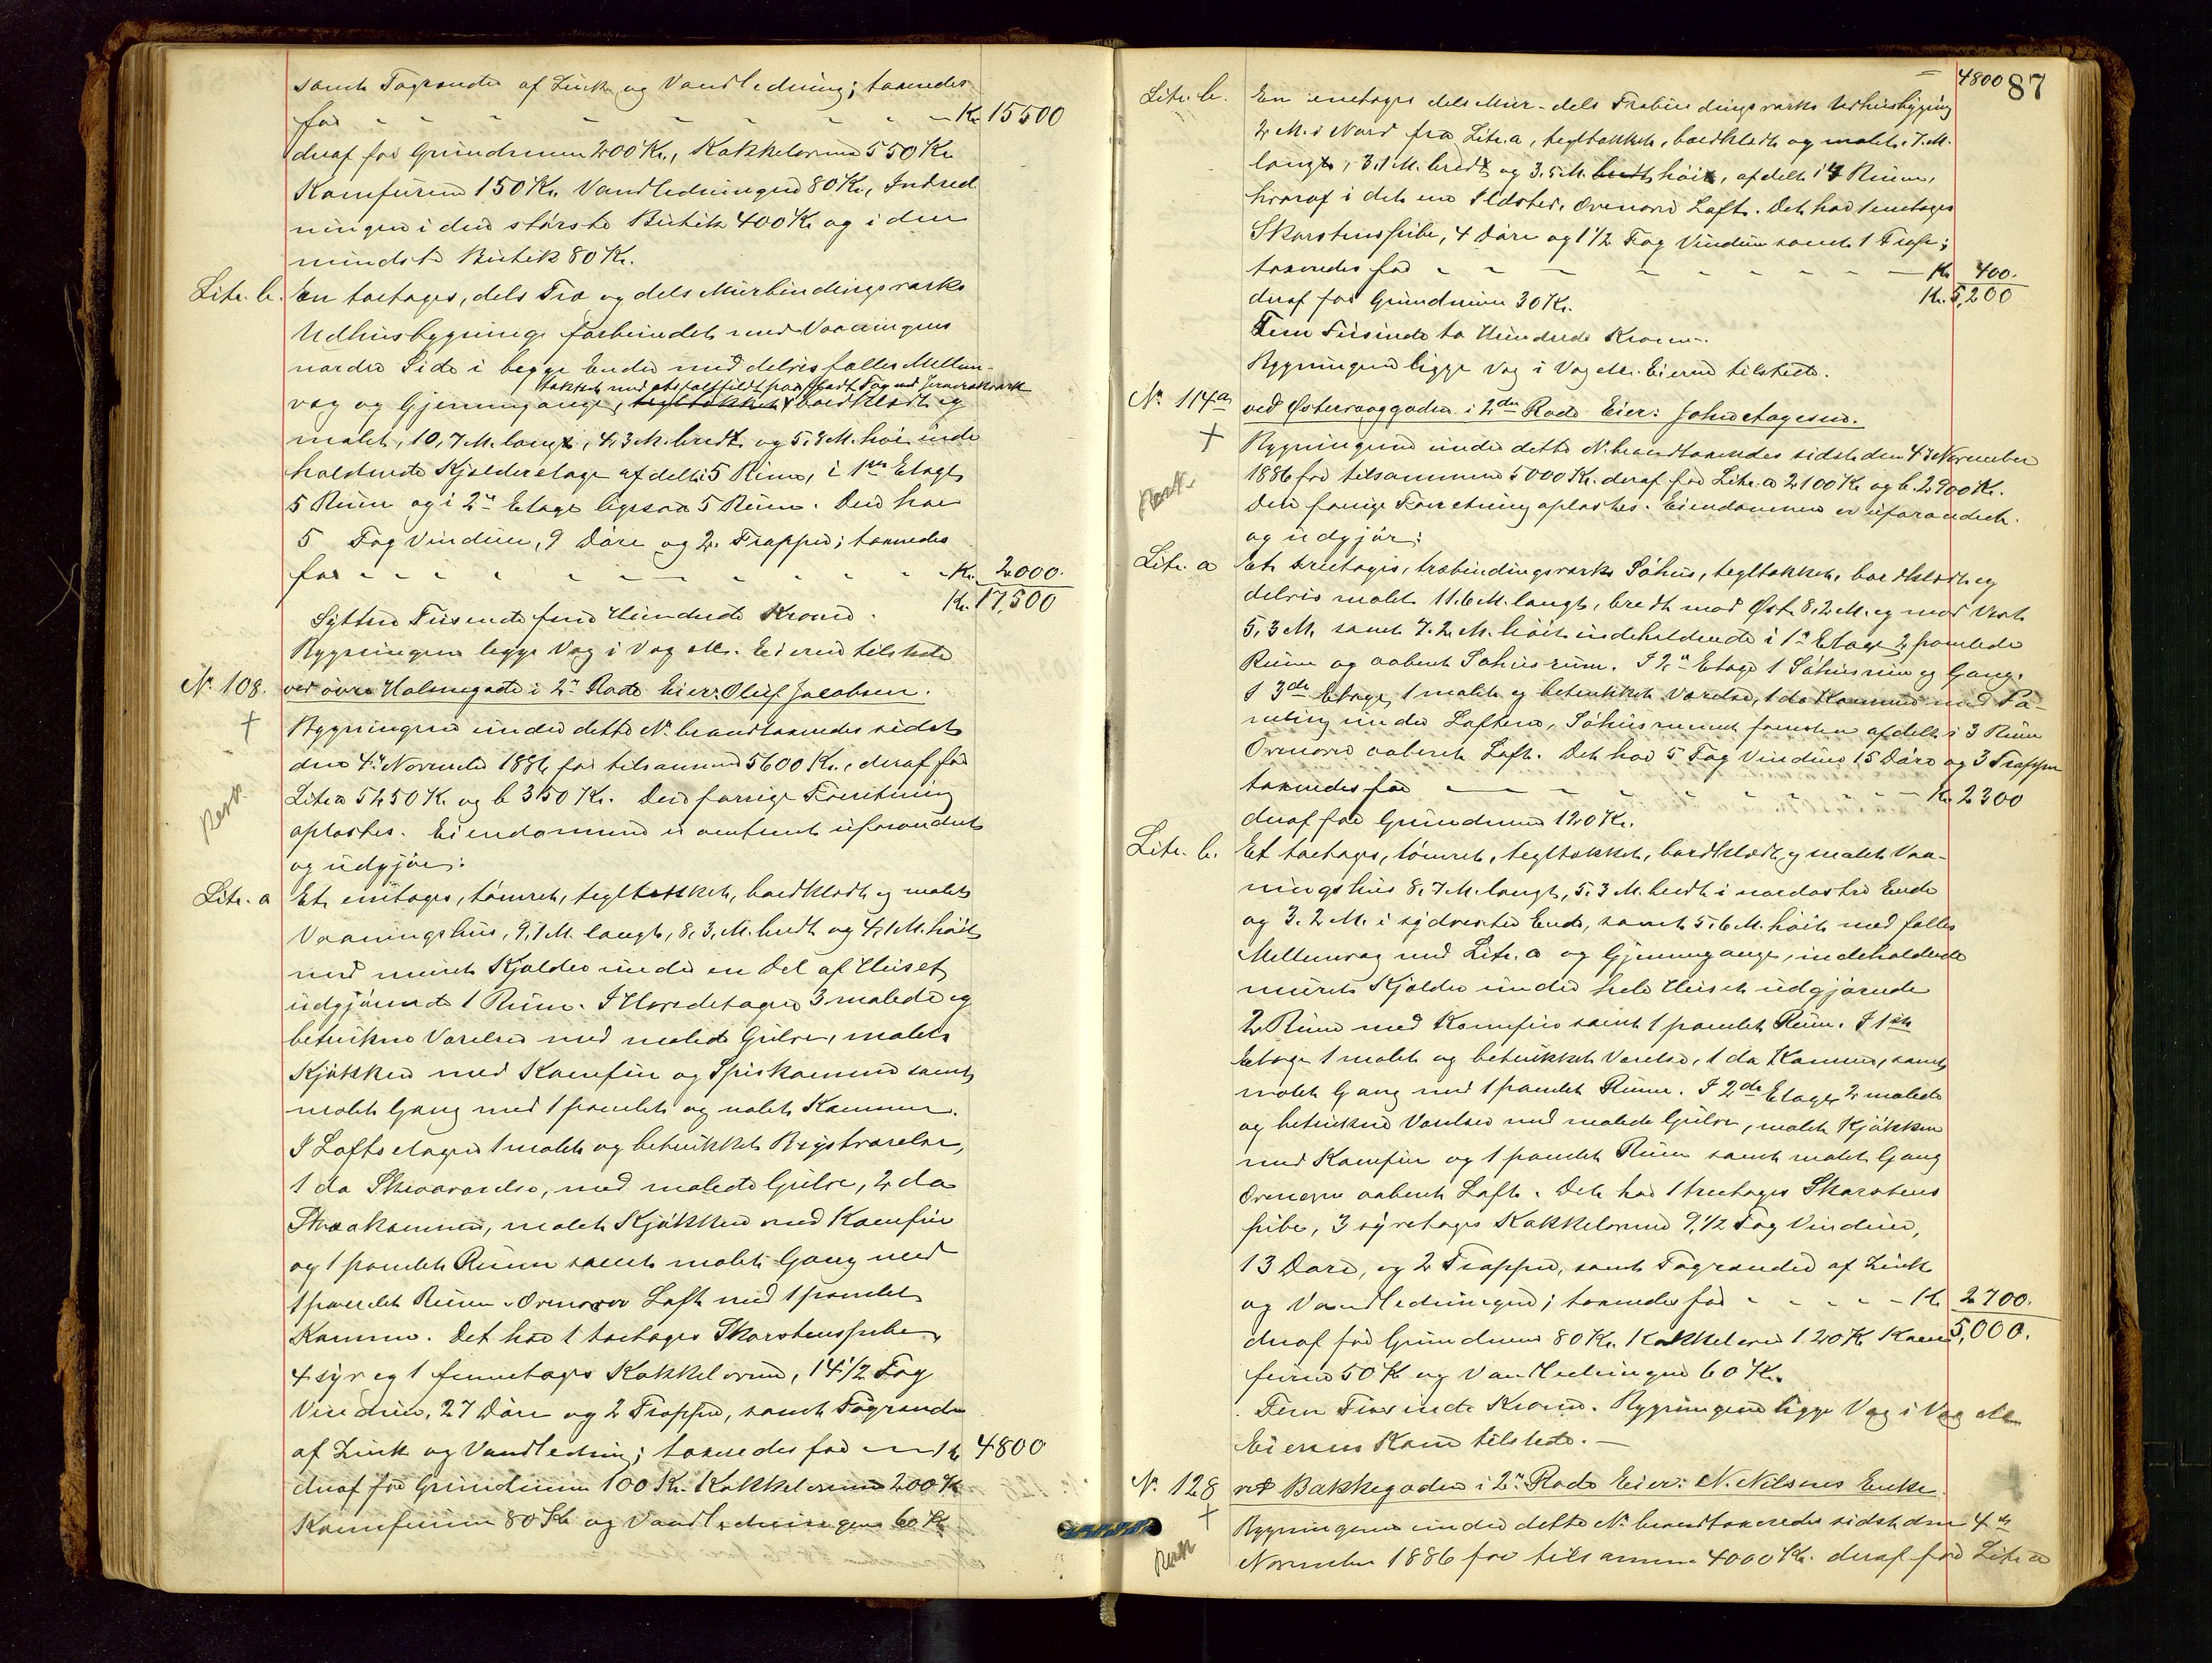 samt Tagrender af Zink og Vandledning; taxeredes
for - - - - - - - - - Kr. 15500
deraf for Grundmuren 200 Kr., Kakkelovnene 550 Kr.
Komfuren 150 Kr. Vandledningen 80 Kr., Indred-
ningen i den største Butik 400 Kr. og i den
mindste Butik 80 Kr.
Litr. b. En toetages, dels Træ og dels Murbindingsværks
Udhusbygning forbundet med Vaaningens
nordre Side i begge Ender med delvis fælles Mellem-
takket med asfaltfildt paa fladt Tag med Jernrækværk
væg og Gjennemgange, tegltækket, bordklædt og
malet, 10,7 M. langt, 4,3 M. bredt og 5,3 M. høi inde
holdende Kjelderetage afdelt i 5 Rum, i 1ste Etage
5 Rum og i 2n Etage ligesaa 5 Rum. Den har
5 Fag Vinduer, 9 Døre og 2 Trapper; taxeredes
for - - - - - - - - - Kr. 2000.
Kr. 17,500
Sytten Tusende fem Hundrede Kroner.
Bygningerne ligge Væg i Væg &c. Eieren tilstede
No 108. ved øvre Holmegade i 2n Rode Eier: Oluf Jacobsen.
† Bygningerne under dette No brandtaxeredes sidst
den 4de November 1886 for tilsammen 5600 Kr., deraf for
Litr a 5250 Kr. og b 350 Kr. Den forrige Forretning
oplæstes. Eiendommen er omtrent uforandret
og udgjør:
Litr. a Et enetages, tømret, tegltækket, bordklædt og malet
Vaaningshus, 9,1 M. langt, 8,3 M. bredt og 4,1 M. høit
med muret Kjelder under en Del af Huset
udgjørende 1 Rum. I Hovedetagen 3 malede og
betrukne Værelser med malede Gulve, malet
Kjøkken med Komfur og Spiskammer samt
malet Gang med 1 panelet og malet Kammer.
I Loftsetagen 1 malet og betrukket Bygstværelse,
1 do Skraaværelse, med malede Gulve, 2 do
Skraakammer, malet Kjøkken med Komfur
og 1 panelet Rum samt malet Gang med
1 panelet Rum. Ovenover Loft med 1 panelet
Kammer. Det har 1 toetages Skorstenspibe,
4 syv og 1 femetages Kakkelovne, 14 1/2 Fag
Vinduer, 27 Døre og 2 Trapper, samt Tagrender
af Zink og Vandledning; taxeredes for - - Kr. 4800
deraf for Grundmuren 100 Kr. Kakkelovnene 200 Kr.
Komfurene 80 Kr. og Vandledningen 60 Kr.
4800 87
Litr. b. En enetages dels Mur- dels Træbindingsværks Udhusbygning
2 M. i Nord fra Litr. a, tegltækket, bordklædt og malet, 7. M.
langt, 3,1 M. bredt og 3,5 M. bredt høit, afdelt i 4 Rum,
hvoraf i det ene Ildsted. Ovenover Loft. Det har 1 enetages
Skorstenspibe, 4 Døre og 1 1/2 Fag Vinduer samt 1 Trappe;
taxeredes for - - - - - - - - - Kr. 400.
deraf for Grundmuren 30 Kr. Kr. 5,200
Fem Tusinde to Hundrede Kroner.
Bygningerne ligge Væg i Væg &c. Eieren tilstede.
No. 114a ved Østervaaggaden i 2den Rode Eier: John Aagesen.
† Bygningerne under dette No. brandtaxeredes sidst den 4de November
1886 for tilsammen 5000 Kr. deraf for Litr. a 2100 Kr. og b. 2900 Kr.
Den forrige Forretning oplæstes. Eiendommen er uforandret
og udgjør:
Litr. a Et treetages, træbindingsværks Søhus, tegltækket, bordklædt og
delvis malet 11.6 M. langt, bredt mod Øst 8,2 M. og mod Vest
5,3 M. samt 7.2 M. høit indeholdende i 1n Etage 2 panelede
Rum og aabent Søhusrum. I 2n Etage 1 Søhusrum og Gang.
I 3de Etage, 1 malet og betrukket Værelse, 1 do Kammer med Pa-
neling under Loftene, Søhusrummet foresten afdelt i 3 Rum
Ovenover aabent Loft. Det har 5 Fag Vinduer 15 Døre og 3 Trapper
taxeredes for - - - - - - - - Kr. 2300
deraf for Grundmuren 120 Kr.
Litr. b. Et toetages, tømret, tegltækket, bordklædt og malet Vaa-
ningshus 8,7 M. langt, 5,3 M. bredt i nordøstre Ende
og 3.2 M. i sydvestre Ende, samt 5,6 M. høit med fælles
Mellemvæg med Litr. a og Gjennemgange, indeholdende
muret Kjelder under hele Huset udgjørende
2 Rum med Komfur samt 1 panelet Rum. I 1ste
Etage 1 malet og betrukket Værelse, 1 do Kammer, samt
malet Gang med 1 panelet Rum. I 2de Etage 2 malede
og betrukne Værelser med malede Gulve, malet Kjøkken
med Komfur og 1 panelet Rum samt malet Gang
Ovenover aabent Loft. Det har 1 treetages Skorstens
pibe, 3 syvetages Kakkelovne 9,1/2 Fag Vinduer,
13 Døre, og 2 Trapper, samt Tagrender af Zink
og Vandledningen; taxeredes for - - - - Kr. 2700.
deraf for Grundmuren 80 Kr. Kakkelovne 120 Kr. Kom 5,000.
furene 50 Kr. og Vandledningen 60 Kr.
Fem Tusinde Kroner. Bygningerne ligge Væg i Væg &c
Eierens Kone tilstede. —
No. 128 ved Bakkegaden i 2n. Rode Eier: N. Nilsens Enke.
† Bygningerne under dette No brandtaxeredes sidst den 4de
November 1886 for tilsammen 4000 Kr. deraf for Litr. a